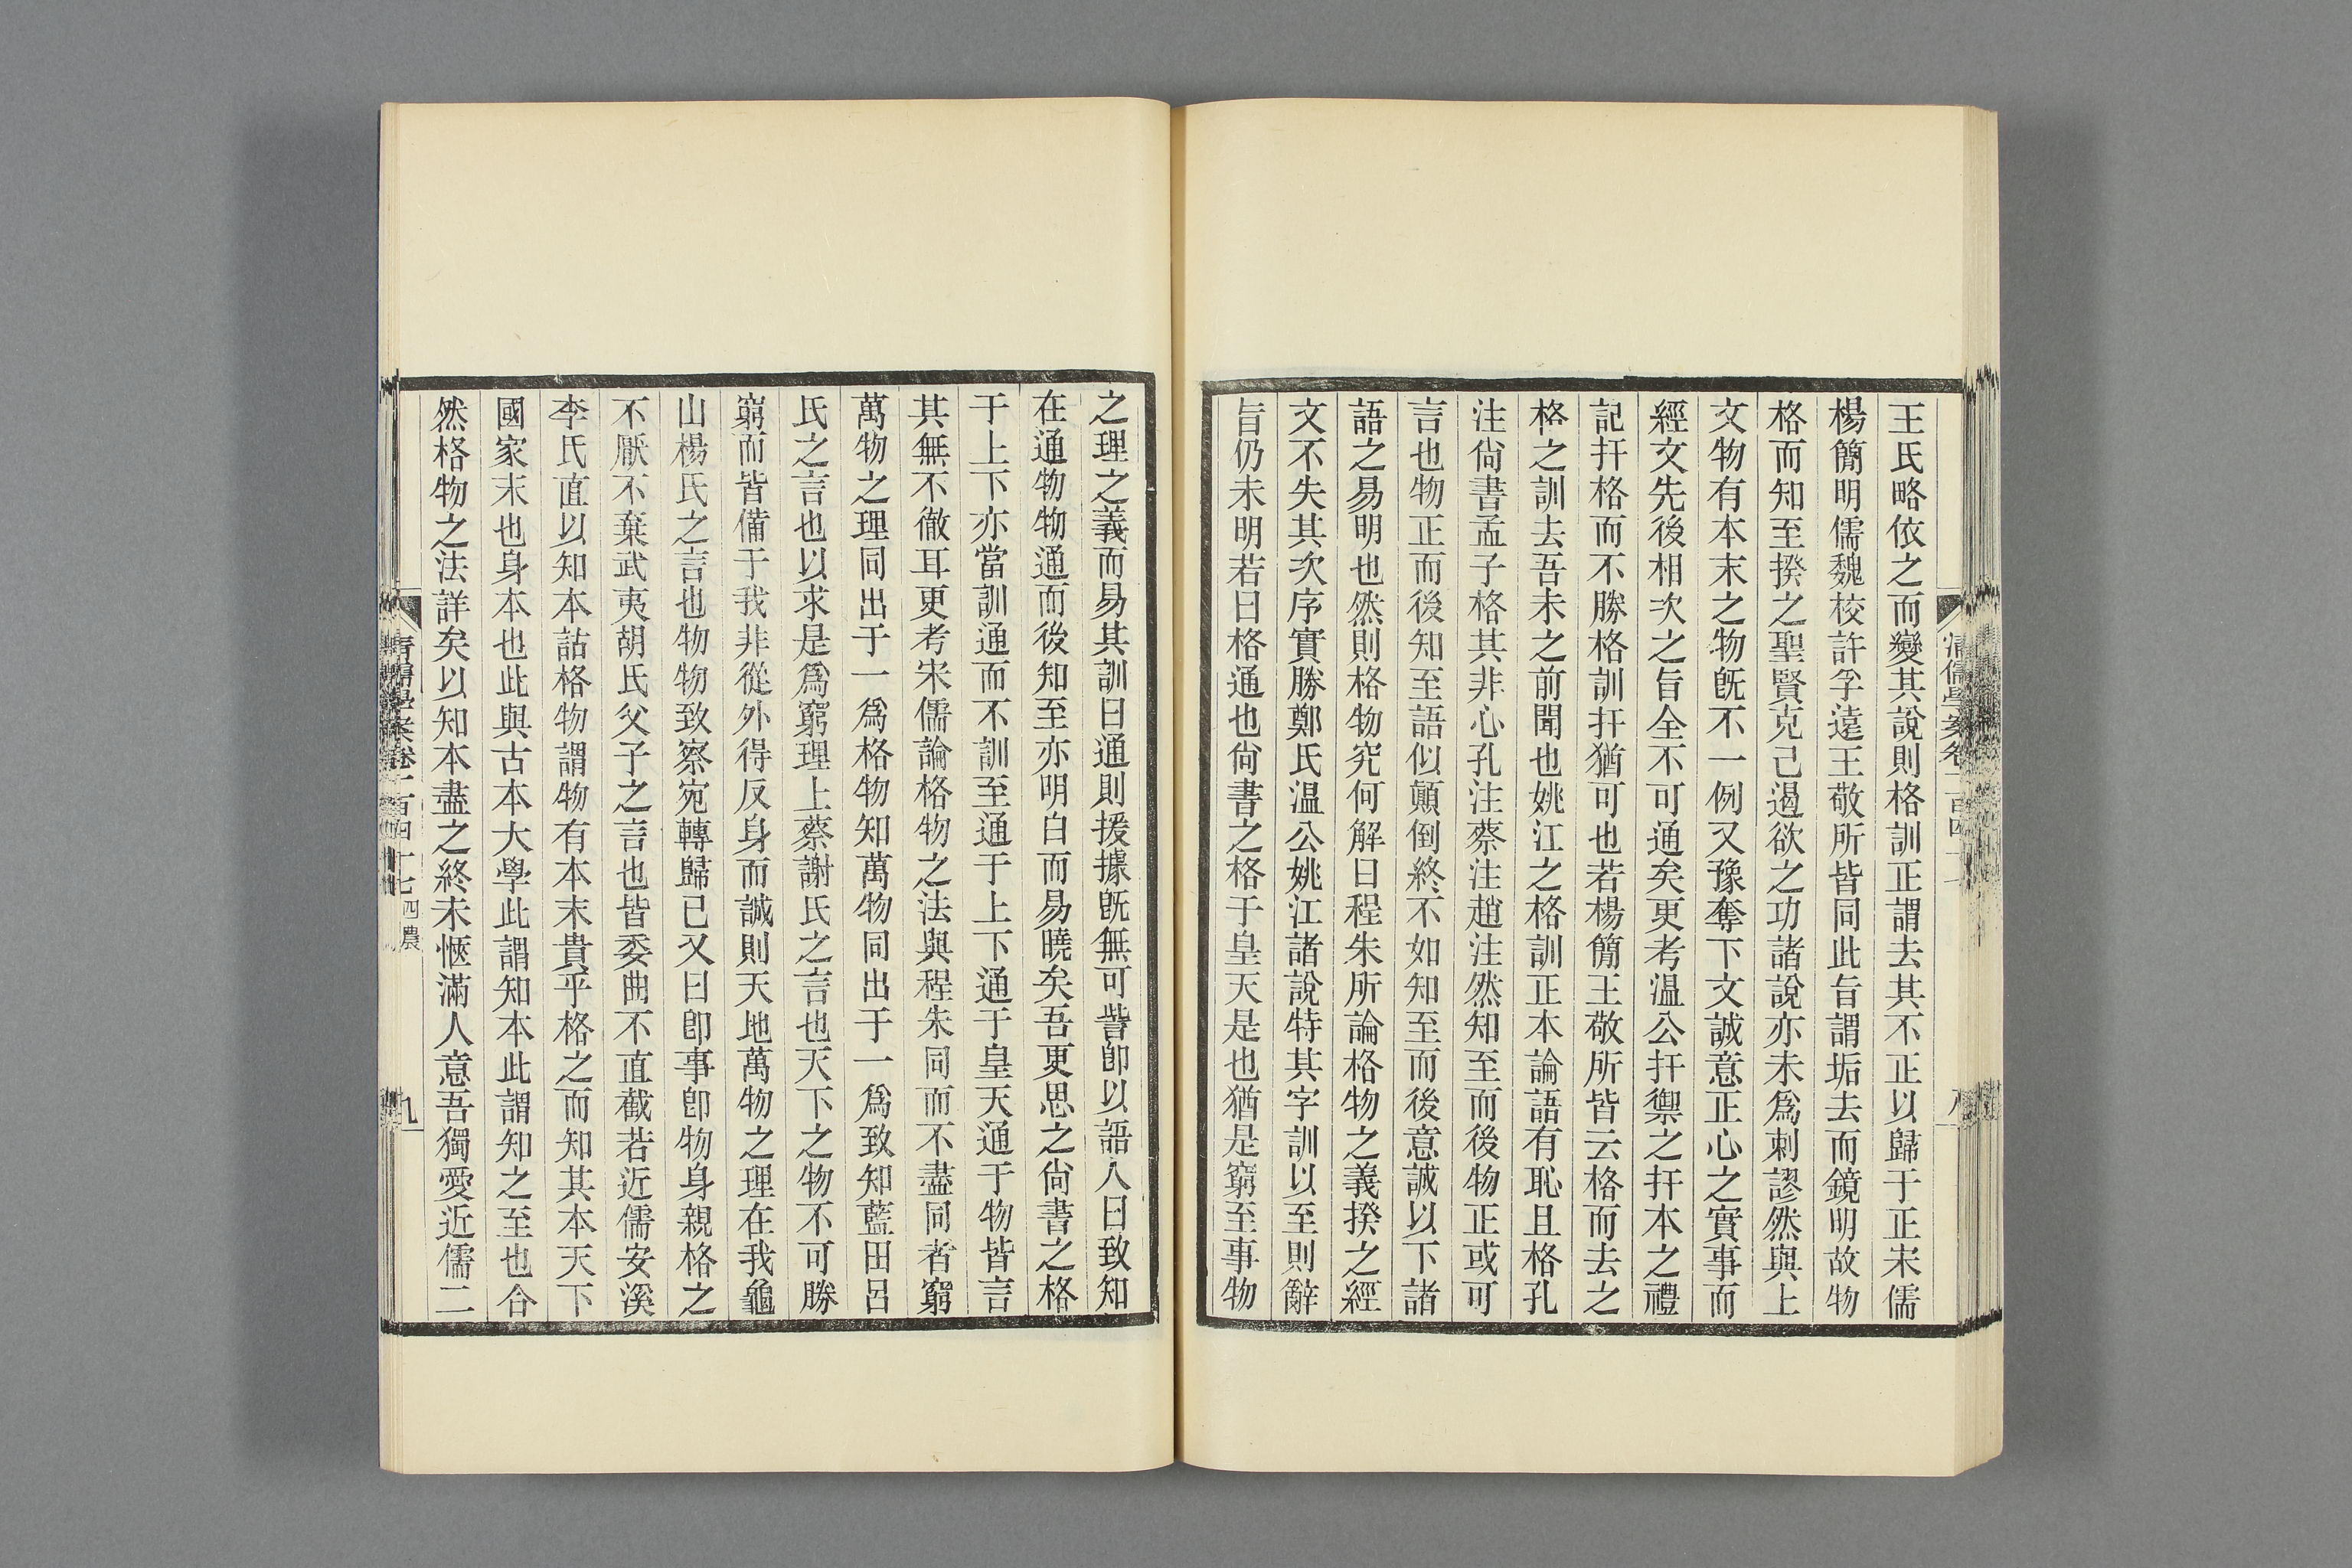 王氏略依之而變其說則格訓正謂去其不正以歸于正宋儒
楊簡明儒魏校許孚遠王敬所皆同此旨謂垢去而鏡明故物
格而知至揆之聖賢克己遏欲之功諸說亦未爲刺謬然與上
文物有本末之物旣不一例又豫奪下文誠意正心之實事而
經文先後相次之旨全不可通矣更考溫公扞禦之扞本之禮
記扞格而不勝格訓扞猶可也若楊簡王敬所皆云格而去之
格之訓去吾未之前聞也姚江之格訓正本論語有恥且格孔
注尙書孟子格其非心孔注蔡注趙注然知至而後物正或可
言也物正而後知至語似顛倒終不如知至而後意誠以下諸
語之易明也然則格物究何解曰程朱所論格物之義揆之經
文不失其次序實勝鄭氏溫公姚江諸說特其字訓以至則辭
旨仍未明若曰格通也尙書之格于皇天是也猶是窮至事物
之理之義而易其訓曰通則援據旣無可訾卽以語人曰致知
在通物物通而後知至亦明白而易曉矣吾更思之尙書之格
于上下亦當訓通而不訓至通于上下通于皇天通于物皆言
其無不徹耳更考宋儒論格物之法與程朱同而不盡同者窮
萬物之理同出于一爲格物知萬物同出于一爲致知藍田呂
氏之言也以求是爲窮理上蔡謝氏之言也天下之物不可勝
窮而皆備于我非從外得反身而誠則天地萬物之理在我龜
山楊氏之言也物物致察宛轉歸己又曰卽事卽物身親格之
不厭不棄武夷胡氏父子之言也皆委曲不直截若近儒安溪
李氏直以知本詁格物謂物有本末貴乎格之而知其本天下
國家末也身本也此與古本大學此謂知本此謂知之至也合
然格物之法詳矣以知本盡之終未愜滿人意吾獨愛近儒二